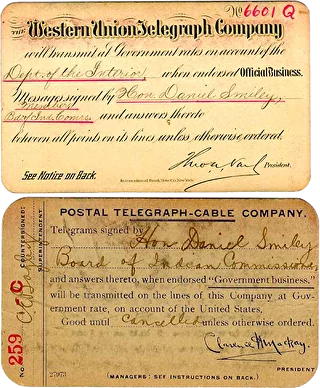 No 6601 Q
THE Western Union Telegraph Company
will transmit at Government rates on account of the
Dept. of the Interior, when endorsed Official Business.
Messages signed by Hon. Daniel Smiley,
Member
Bd of Ind. Comrs. and answers thereto
between all points on its lines, unless otherwise ordered.
President.
See Notice on Back.
POSTAL TELEGRAPH-CABLE COMPANY.
Telegrams signed by
Hon Daniel Smiley
Board of Indian Commissioners
and answers thereto, when endorsed "Government business."
will be transmitted on the lines of this Company at Gov-
ernment rate, on account of the United States,
Good until Cancelled unless otherwise ordered.
Clarence H Mackay
PRESIDENT
27973
(MANAGERS: SEE INSTRUCTIONS ON BACK.)
No 259 C
COUNTERSIGNED:
SUPERINTENDENT